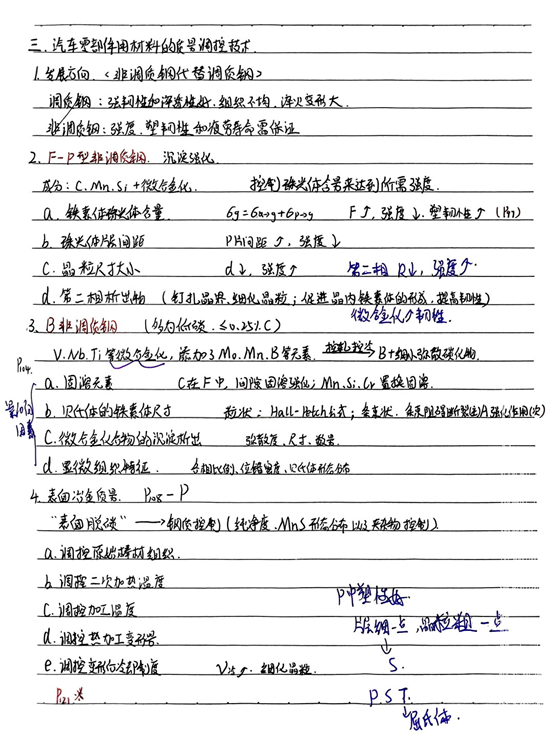 三. 汽车零部件用材料的质量调控技术.
1. 发展方向. <非调质钢代替调质钢>
调质钢：强韧性和淬透性好. 组织不均. 淬火变形大.
非调质钢：强度. 塑韧性和疲劳寿命需保证
2. F-P型非调质钢. 沉淀强化.
成分：C. Mn. Si + 微合金化. 控制珠光体含量来达到所需强度.
a. 铁素体珠光体含量. F↑, 强度↓. 塑韧性↑
b. 珠光体片层间距 P片间距↑, 强度↓
c. 晶粒尺寸大小 d↓, 强度↑ 第二相 R↓, 强度↑.
d. 第二相析出物 (钉扎晶界、细化晶粒；促进晶内铁素体的形成, 提高韧性)
微合金化↗韧性.
3. B非调质钢 ≤0.25% C)
V. Nb. Ti等微合金化, 添加了Mo. Mn. B等元素. 控轧控冷 → B+细小弥散碳化物.
P104.
影响因素
a. 固溶元素 C在F中, 间隙固溶强化；Mn. Si. Cr 置换固溶.
b. 贝氏体的铁素体尺寸 粒状：Hall-Petch公式；
c. 微合金化合物的沉淀析出 弥散度、尺寸、数量.
d. 显微组织特征. 各相比例、位错密度、贝氏体形态分布
4. 表面冶金质量. P108-P
“表面脱碳” → 钢质控制 (纯净度. MnS形态分布以及夹杂物控制).
a. 调控原始棒材组织.
b. 调控二次加热温度
c. 调控加工温度
P中塑性好
片层细一点, 晶粒粗一点
d. 调控热加工变形量.
↓
S.
e. 调控变形后冷却制度 V冷↑. 细化晶粒.
P121 ※
P S T.
↓屈氏体.